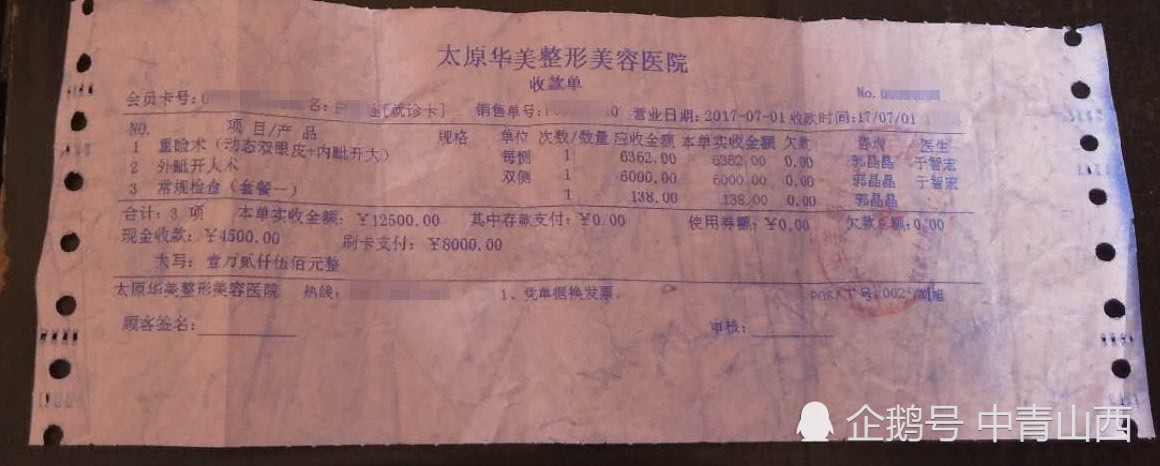 太原华美整形美容医院
收款单
No.
会员卡号: 名: [就诊卡] 销售单号: 0 营业日期:2017-07-01 收款时间:17/07/01
NO. 项目/产品 规格 单位 次数/数量 应收金额 本单实收金额 欠款 咨询 医生
1 重睑术（动态双眼皮+内眦开大） 每侧 1 6362.00 6362.00 0.00 郭晶晶 于智宏
2 外眦开大术 双侧 1 6000.00 6000.00 0.00 郭晶晶 于智宏
3 常规检查（套餐一） 1 138.00 138.00 0.00 郭晶晶
合计: 3 项 本单实收金额: ￥12500.00 其中存款支付: ￥0.00 使用券额: ￥0.00 欠款总额:0.00
现金收款: ￥4500.00 刷卡支付: ￥8000.00
大写: 壹万贰仟伍佰元整
太原华美整形美容医院 热线: 1、凭单据换发票. 002
顾客签名: 审核:
企鹅号 中青山西